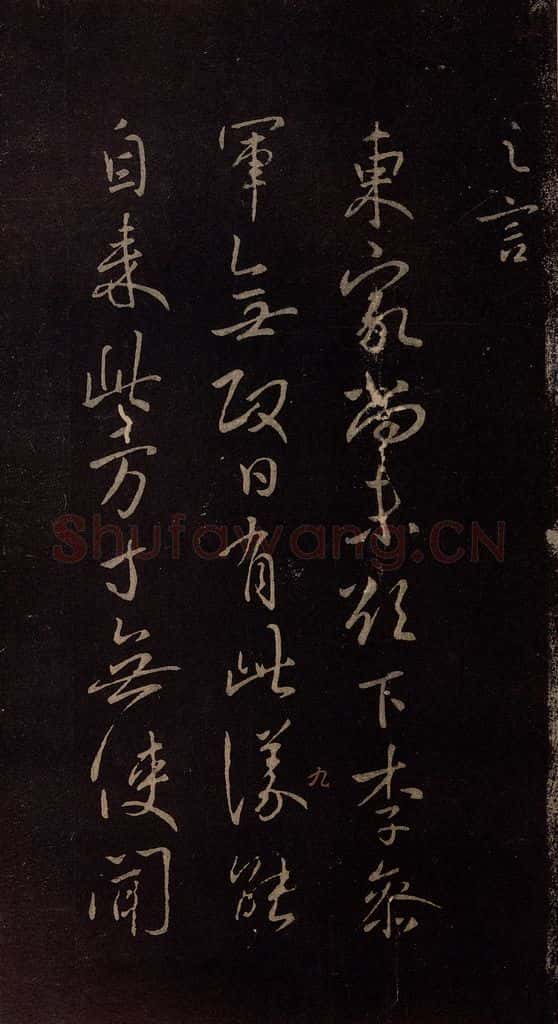 之言
東家嘗未欲下李參
軍無政日有此議能
自來此方寸無使聞
九
Shufawang.CN